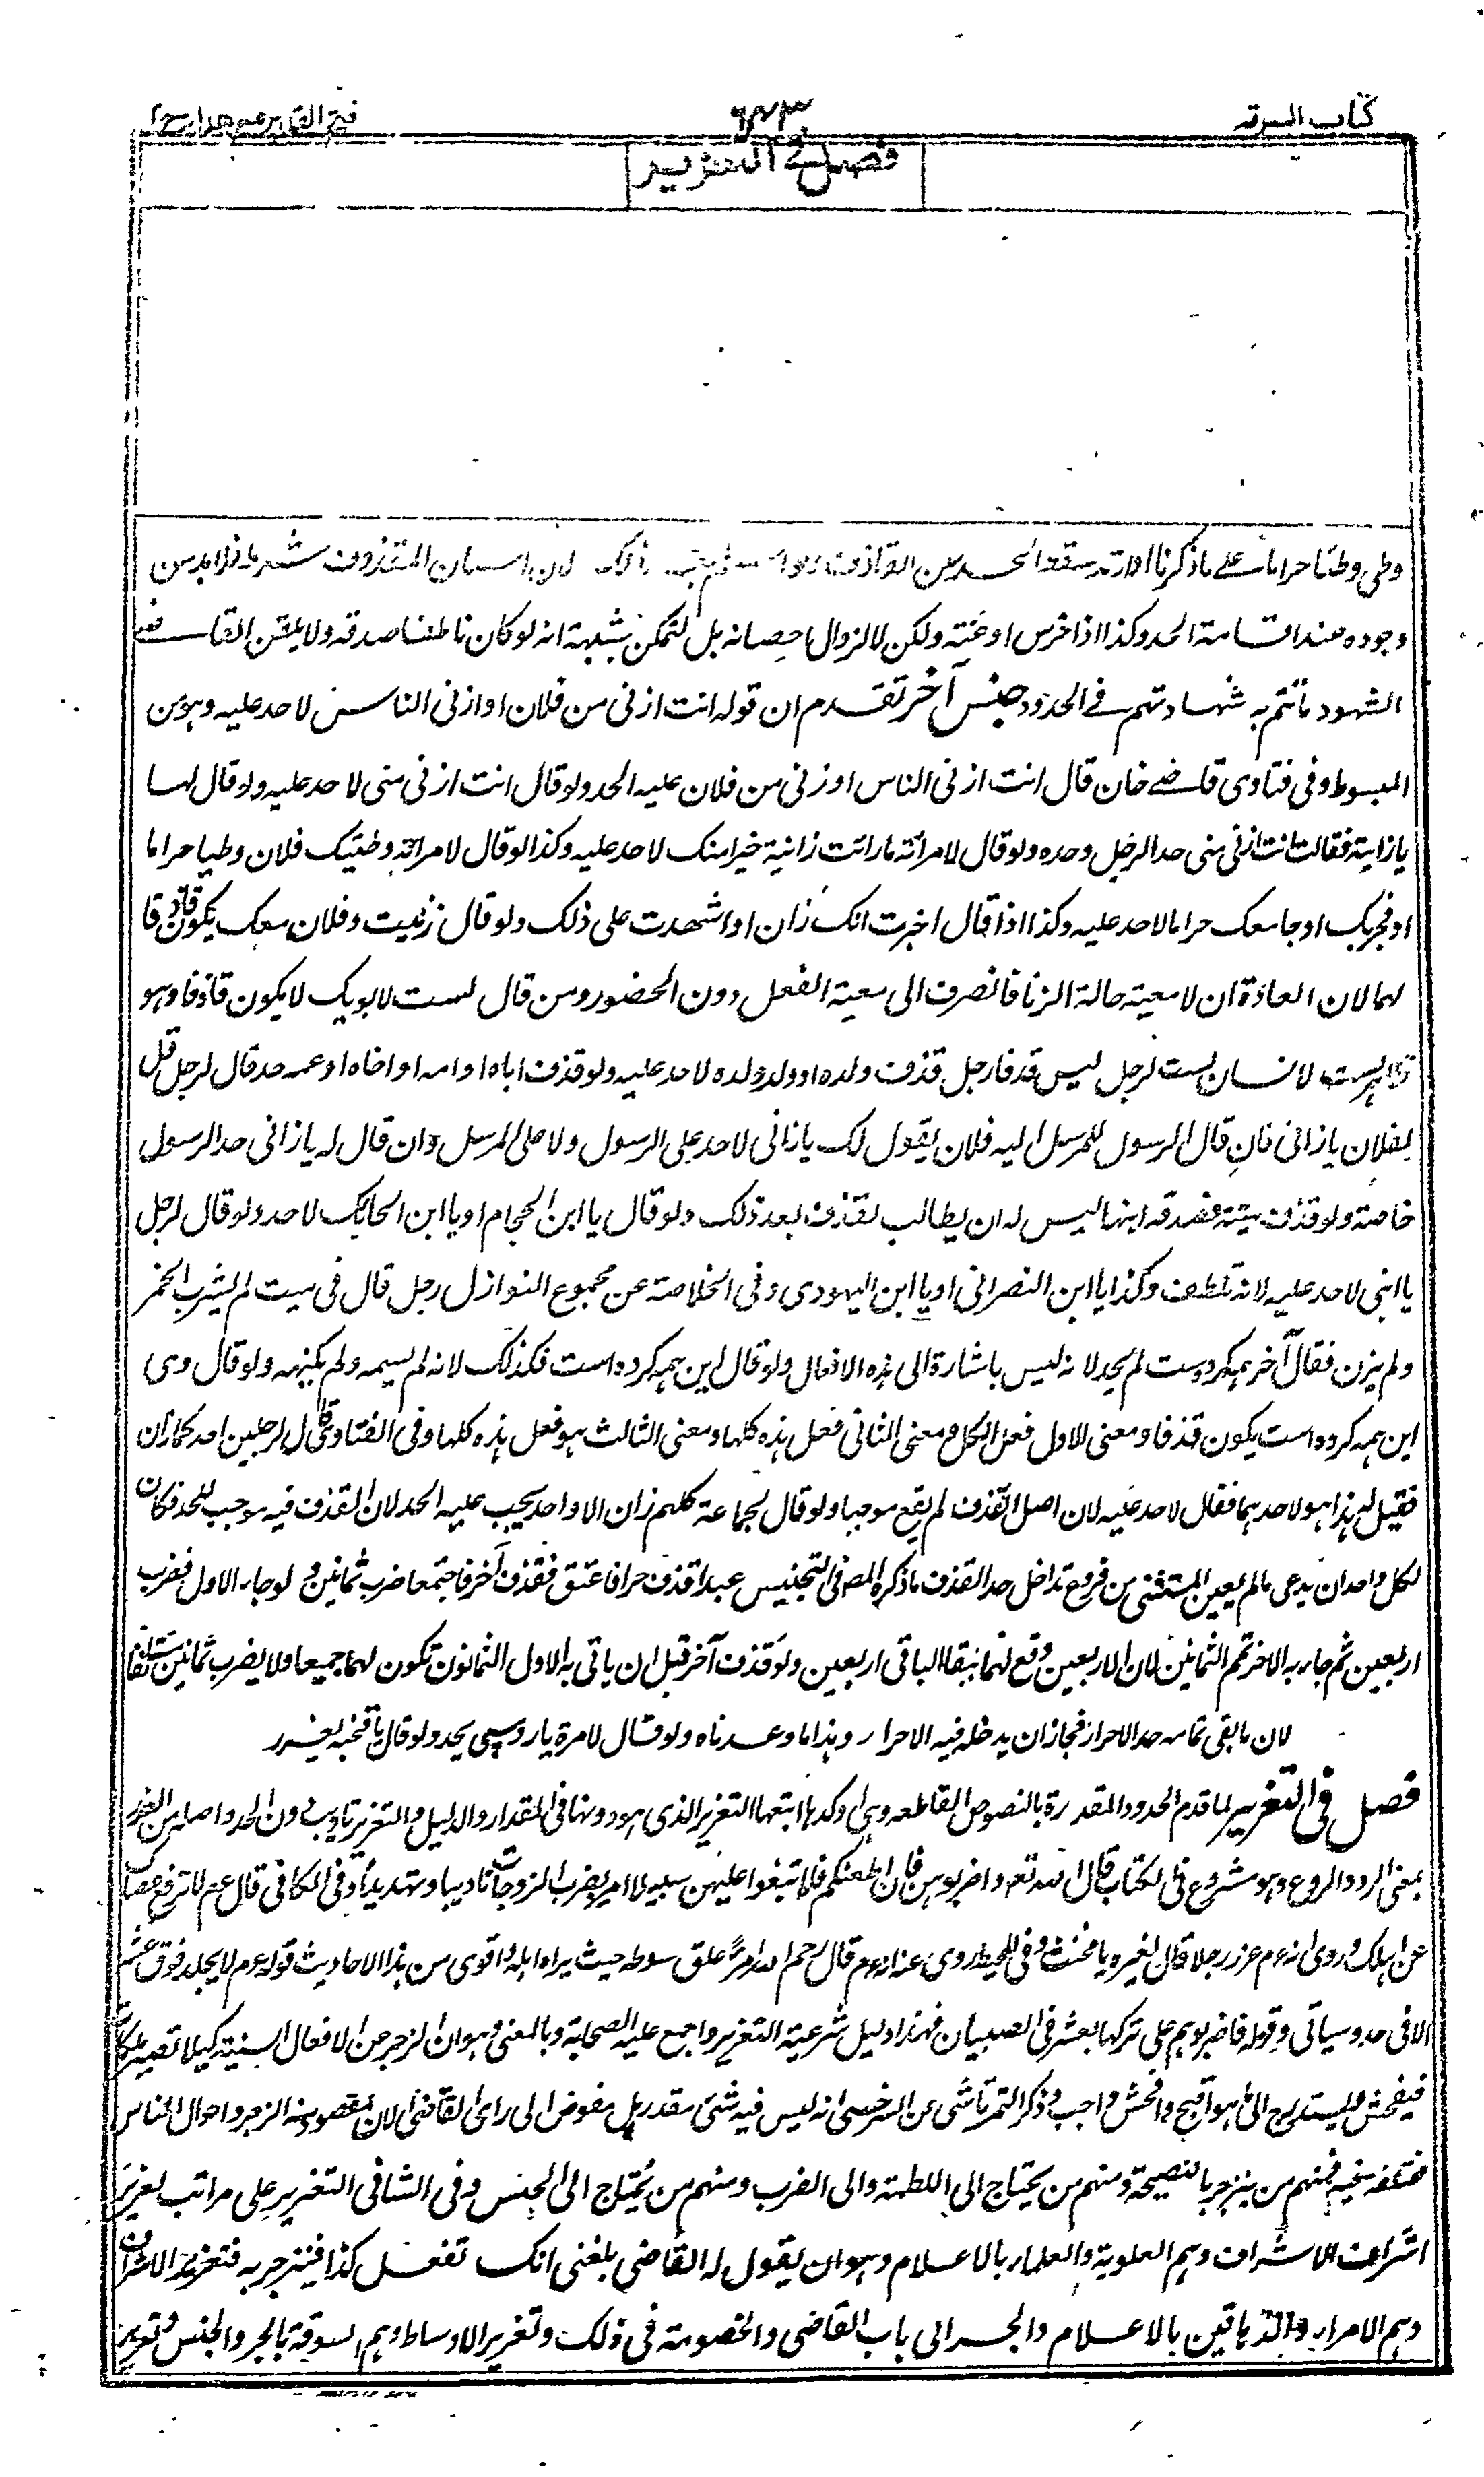 كتاب السرقة
٦٤٣
فتح القدير مع هداية ج ٢
فصل في التعزير
وطى وطئا حراما على ما ذكرنا او ارتد سقط الحد عن القاذف لان احصان المقذوف شرط فلا بد من
وجوده عند اقامة الحد وكذا اذا خرس او عته ولكن لا لزوال احصانه بل لتمكن شبهة انه لو كان ناطقا صدقه ولا يلقن القاضى
الشهود ما تتم به شهادتهم فى الحدود جنس آخر تقدم ان قوله انت ازنى من فلان او ازنى الناس لا حد عليه وهو من
المبسوط وفى فتاوى قاضى خان قال انت ازنى الناس او زنى من فلان عليه الحد ولو قال انت ازنى منى لا حد عليه ولو قال لها
يا زانية فقالت انت ازنى منى حد الرجل وحده ولو قال لامرأته ما رأيت زانية خيرا منك لا حد عليه وكذا لو قال لامرأته وطئيك فلان وطيا حراما
او فجر بك او جامعك حراما لا حد عليه وكذا اذا قال اخبرت انك زان او اشهدت على ذلك ولو قال زنيت وفلان معك يكون قاذفا
لهما لان العادة ان لا معية حالة الزنا فانصرف الى معية الفعل دون الحضور ومن قال لست لابويك لا يكون قاذفا وهو
لست لانسان لست لرجل ليس قذفا رجل قذف ولده او ولد ولده لا حد عليه ولو قذف اباه او امه او اخاه او عمه حد قال لرجل قل
لفلان يا زانى فان قال الرسول للمرسل اليه فلان يقول لك يا زانى لا حد على الرسول ولا على المرسل وان قال له يا زانى حد الرسول
خاصة ولو قذف ميتة فصدقه ابنها ليس له ان يطالب بقذف بعد ذلك ولو قال يا ابن الحجام او يا ابن الحائك لا حد ولو قال لرجل
يا ابنى لا حد عليه لانه تلطف وكذا يا ابن النصرانى او يا ابن اليهودى وفى الخلاصة عن مجموع النوازل رجل قال فى ميت لم يشرب الخمر
ولم يزن فقال آخر همه كرده ست لم يحد لانه ليس باشارة الى هذه الافعال ولو قال اين همه كرده است فكذلك لانه لم يسمه ولم يكنهه ولو قال وى
اين همه كرده است يكون قذفا ومعنى الاول فعل الكل ومعنى الثانى فعل هذه كلها ومعنى الثالث هو فعل هذه كلها وفى الفتاوى قال لرجلين احدكما زان
فقيل له هذا هو لاحدهما فقال لا حد عليه لان اصل القذف لم يقع موجبا ولو قال لجماعة كلهم زان الا واحد يجب عليه الحد لان القذف فيه موجب للحد فكان
لكل واحد ان يدعى ما لم يعين المستثنى من فروع تداخل حد القذف ما ذكره المصنف فى التجنيس عبد اقذف حرا فاعتق فقذف آخر فاجتمعا ضرب ثمانين ولو جاء الاول فضرب
اربعين ثم جاء به الآخر تمم الثمانين لان الاربعين وقع لهما بقى الباقى اربعين ولو قذف آخر قبل ان ياتى به الاول الثمانون تكون لهما جميعا ولا يضرب ثمانين مستأنفا
لان ما بقى تمامه حد الاحرار فجاز ان يدخل فيه الاحرار وهذا ما وعدناه ولو قال لامرة يا روسپى يحد ولو قال يا قحبة يعزر
فصل فى التعزير لما قدم الحدود المقدرة بالنصوص القاطعه وهى اوكد اتبعها التعزير الذى هو دونها فى المقدار والدليل والتعزير تاديب دون الحد واصله من العزر
بمعنى الرد والردع وهو مشروع فى الكتاب قال الله تع واضربوهن فان اطعنكم فلا تبغوا عليهن سبيلا امر بضرب الزوجات تاديبا وتهديدا وفى الكافى قال عم لا ترفع عصاك
عن اهلك وروى انه عم عزر رجلا قال لغيره يا مخنث وفى المحيط روى عنه عم قال رحم الله امرءا علق سوطه حيث يراه اهله واقوى من هذا الاحاديث قوله عم لا يجلد فوق عشر
الا فى حد وسياتى وقوله فاضربوهم على تركها بعشر فى الصبيان فهذا دليل شرعية التعزير واجمع عليه الصحابة وبالمعنى وهو ان الزجر عن الافعال السيئة كيلا تصير ملكات
فيفحش ويستدرج الى ما هو اقبح وافحش واجب وذكر التمرتاشى عن السرخسى انه ليس فيه شئ مقدر بل مفوض الى راى القاضى لان المقصود منه الزجر واحوال الناس
مختلفة فيه فمنهم من ينزجر بالنصيحة ومنهم من يحتاج الى اللطمة والى الضرب ومنهم من يحتاج الى الحبس وفى الشافى التعزير على مراتب تعزير
اشراف الاشراف وهم العلوية والعلماء بالاعلام وهو ان يقول له القاضى بلغنى انك تفعل كذا فينزجر به وتعزير الاشراف
وهم الامراء والدهاقين بالاعلام والجر الى باب القاضى والخصومة فى ذلك وتعزير الاوساط وهم السوقة بالجر والحبس وتعزير